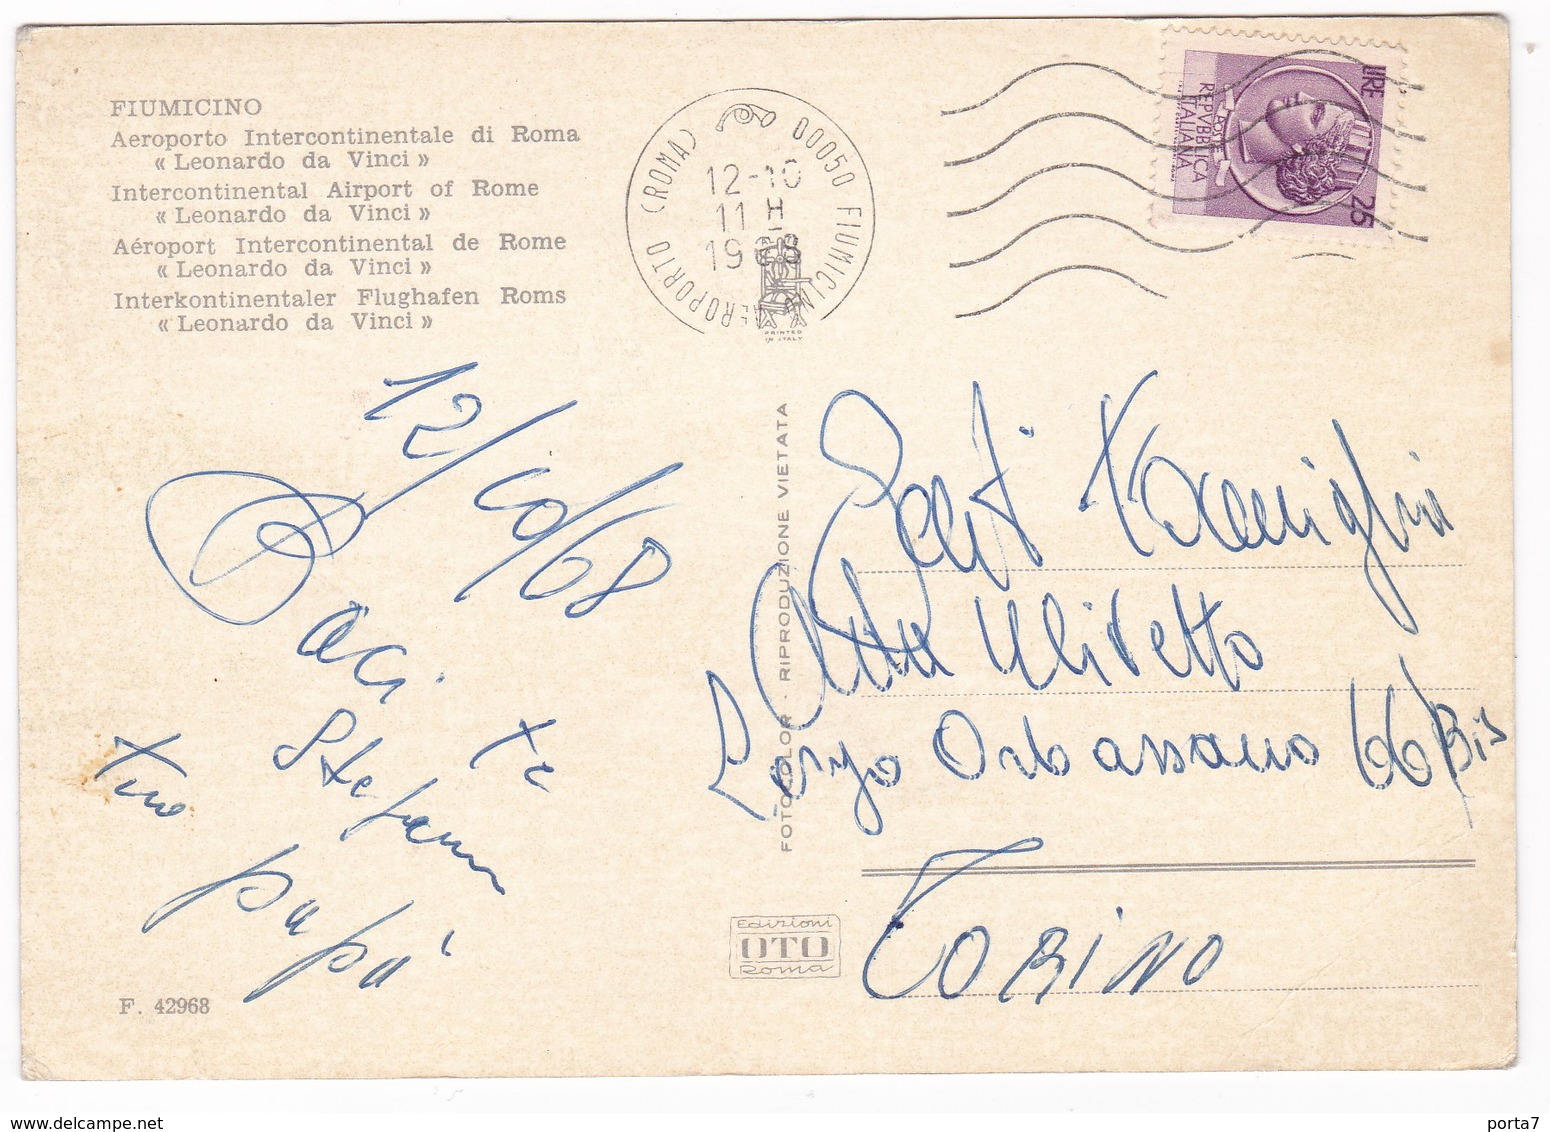 FIUMICINO
Aeroporto Intercontinentale di Roma
« Leonardo da Vinci »
Intercontinental Airport of Rome
« Leonardo da Vinci »
Aéroport Intercontinental de Rome
« Leonardo da Vinci »
Interkontinentaler Flughafen Roms
« Leonardo da Vinci »
00050 FIUMICINO AEROPORTO (ROMA)
12-10
11 H
1968
PRINTED
IN ITALY
LIRE
25
REPVBBLICA
ITALIANA
12/10/68
Baci
Stefano
papà
FOTOCOLOR - RIPRODUZIONE VIETATA
Gent. Famiglia
Ulivetto
Corso Orbassano 66/Bis
TORINO
Edizioni
OTO
Roma
F. 42968
porta7
www.delcampe.net